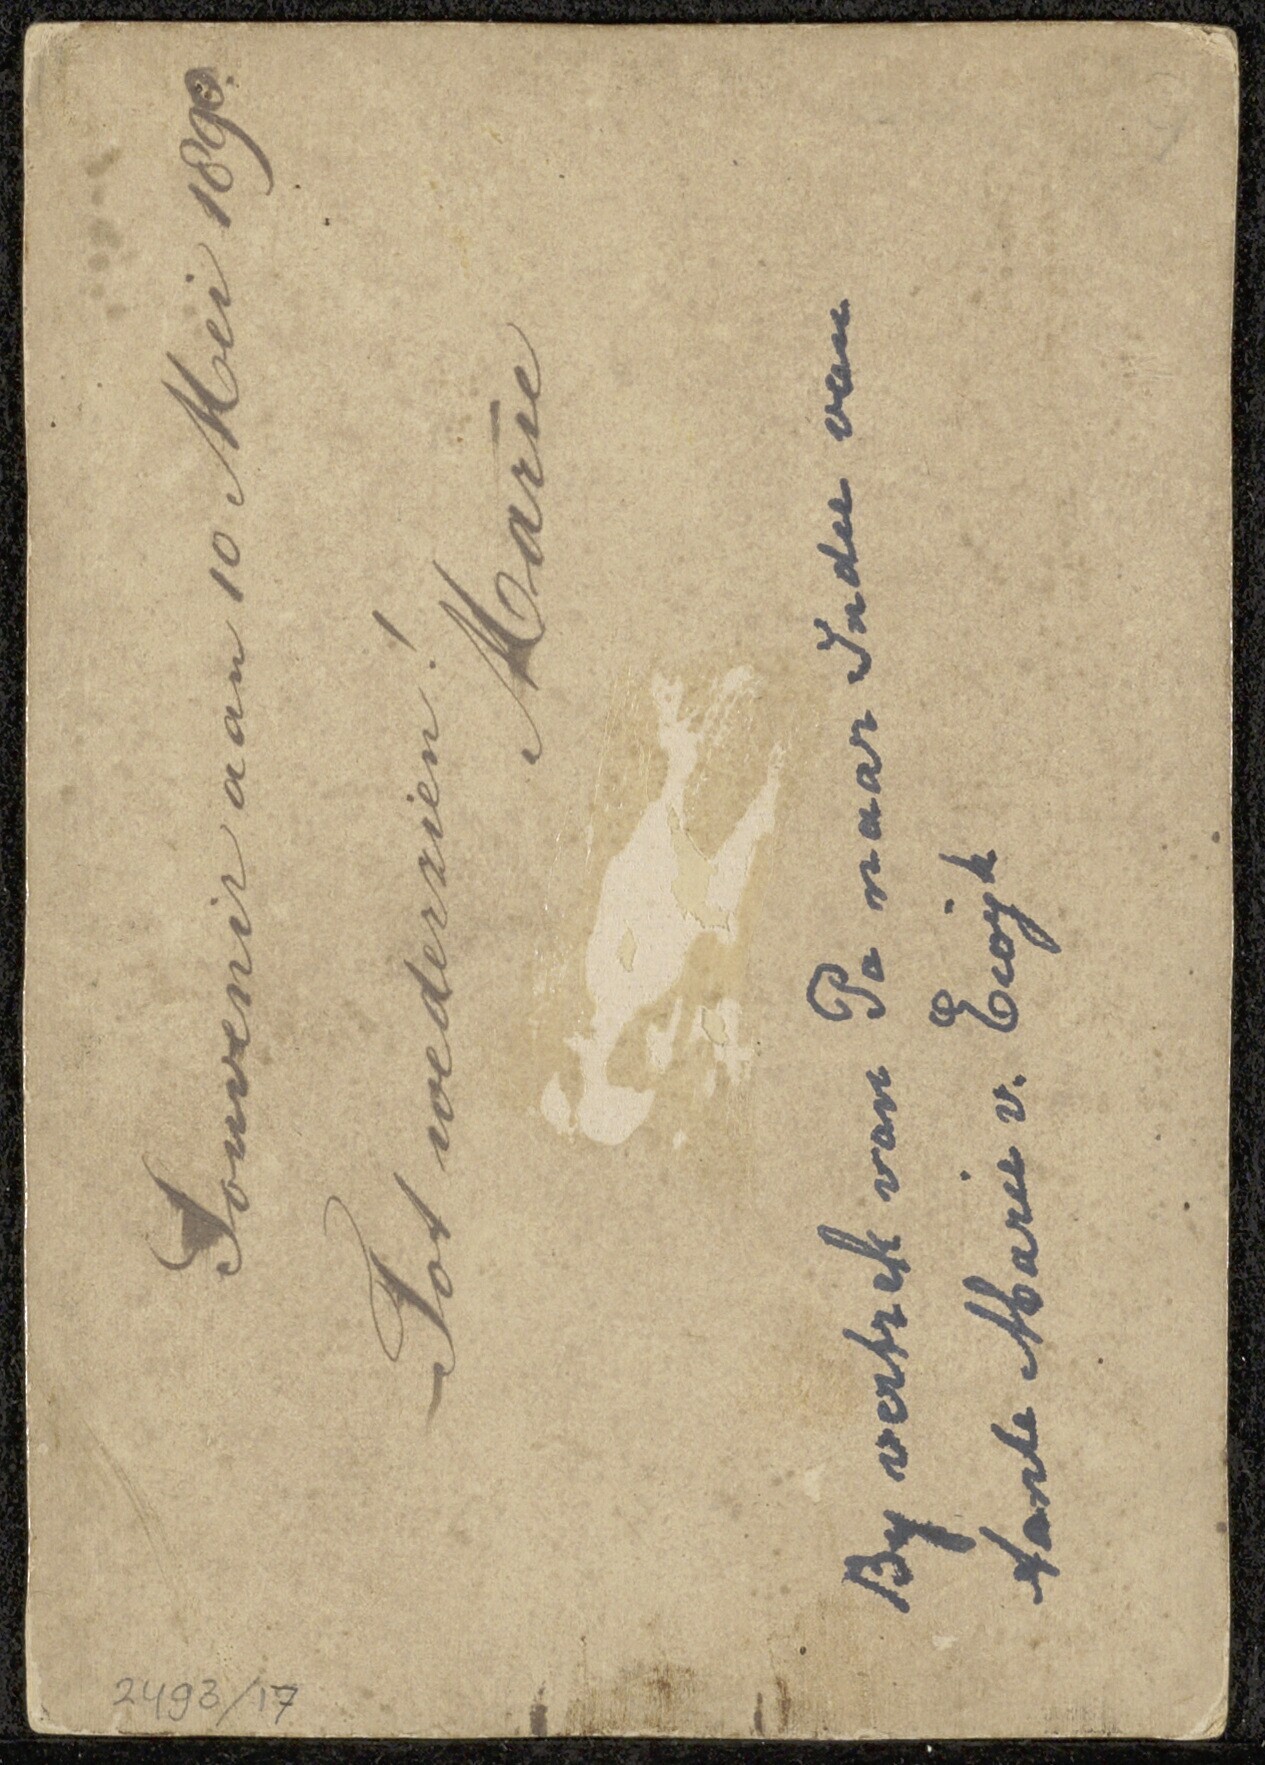 Souvenir aan 10 Mei 1890.
Tot wederzien!
Marie
By vertrek van Pa naar Indie van
tante Marie v. Ewijk
2493/17